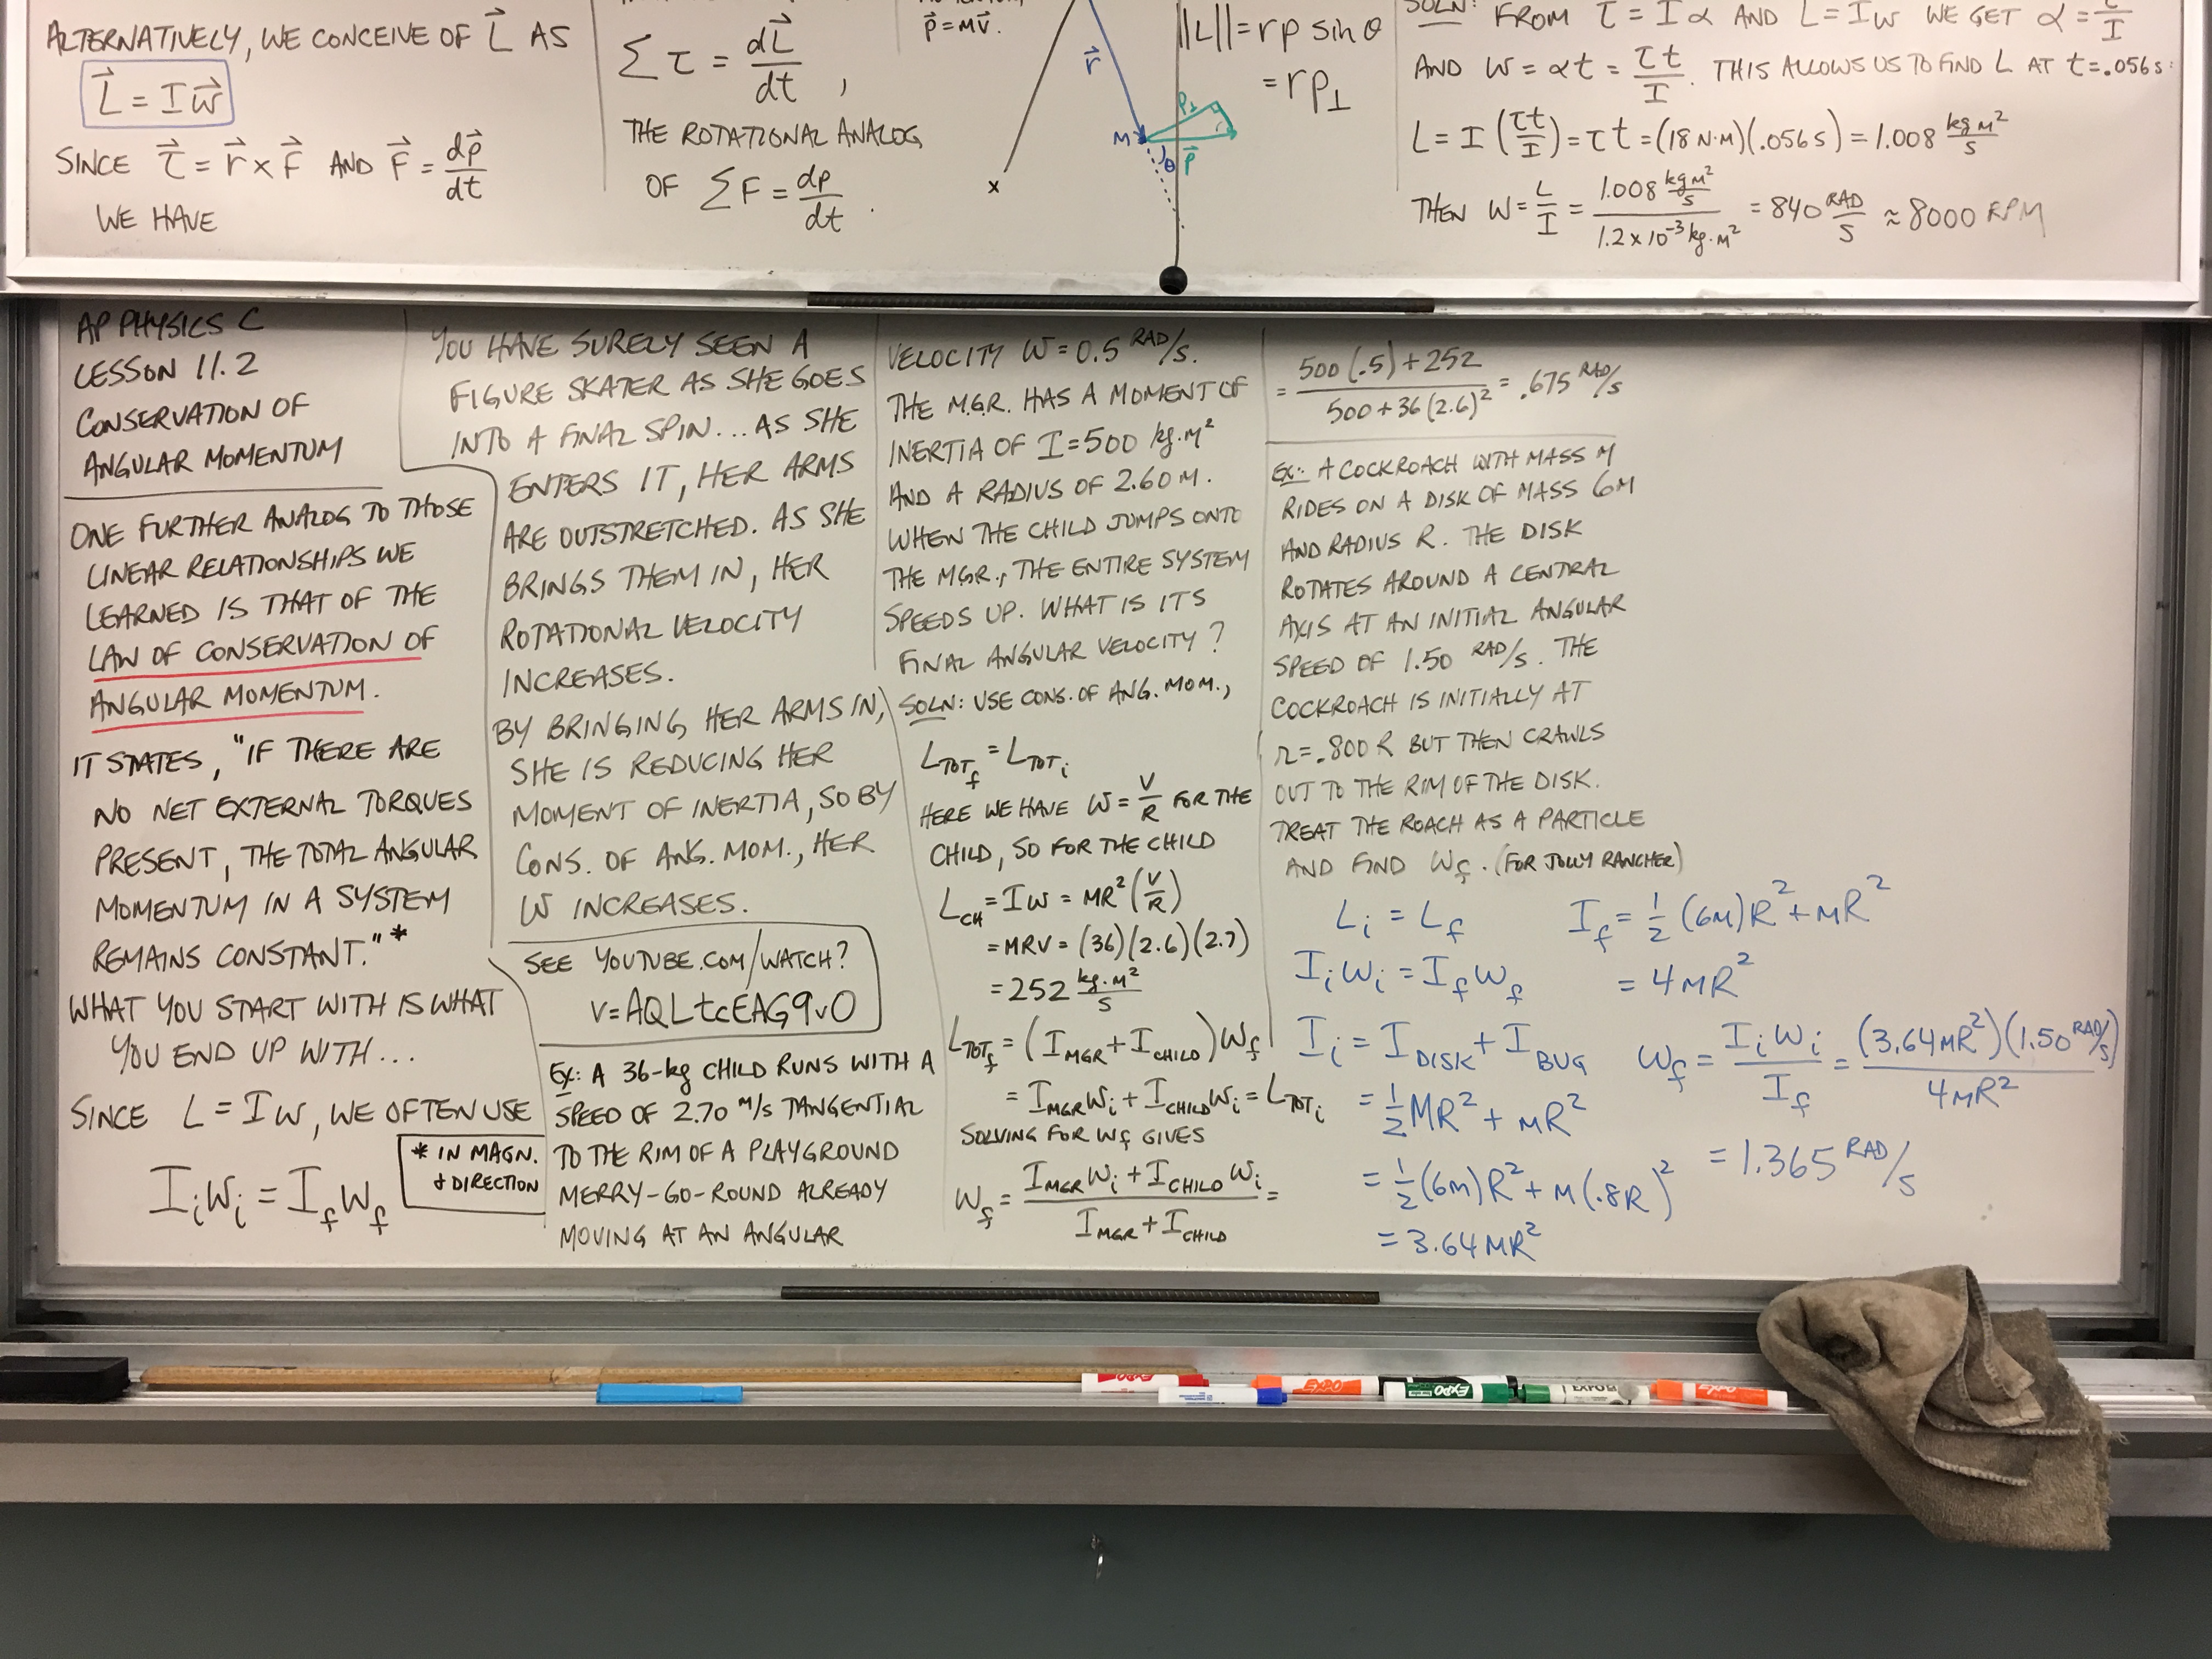 ALTERNATIVELY, WE CONCEIVE OF L⃗ AS
L⃗ = Iω⃗
SINCE τ⃗ = r⃗ × F⃗ AND F⃗ = dp⃗/dt
WE HAVE
Στ = dL⃗/dt ,
THE ROTATIONAL ANALOG
OF ΣF = dp/dt .
p⃗ = MV⃗.
r⃗
M
P⊥
θ
p⃗
x
||L|| = rp sin θ
= rp⊥
SOLN: FROM τ = Iα AND L = Iω WE GET α = τ/I
AND ω = αt = τt/I. THIS ALLOWS US TO FIND L AT t=.056s:
L = I (τt/I) = τt = (18 N·M)(.056 s) = 1.008 kg M²/s
THEN ω = L/I = 1.008 kg M²/s / 1.2 x 10⁻³ kg·M² = 840 RAD/S ≈ 8000 RPM
AP PHYSICS C
LESSON 11.2
CONSERVATION OF
ANGULAR MOMENTUM
ONE FURTHER ANALOG TO THOSE
LINEAR RELATIONSHIPS WE
LEARNED IS THAT OF THE
LAW OF CONSERVATION OF
ANGULAR MOMENTUM.
IT STATES, "IF THERE ARE
NO NET EXTERNAL TORQUES
PRESENT, THE TOTAL ANGULAR
MOMENTUM IN A SYSTEM
REMAINS CONSTANT."*
WHAT YOU START WITH IS WHAT
YOU END UP WITH...
SINCE L = Iω, WE OFTEN USE
Iᵢωᵢ = I_f ω_f
* IN MAGN.
+ DIRECTION
YOU HAVE SURELY SEEN A
FIGURE SKATER AS SHE GOES
INTO A FINAL SPIN... AS SHE
ENTERS IT, HER ARMS
ARE OUTSTRETCHED. AS SHE
BRINGS THEM IN, HER
ROTATIONAL VELOCITY
INCREASES.
BY BRINGING HER ARMS IN,
SHE IS REDUCING HER
MOMENT OF INERTIA, SO BY
CONS. OF ANG. MOM., HER
ω INCREASES.
SEE YOUTUBE.COM/WATCH?
v=AQLtcEAG9v0
EX: A 36-kg CHILD RUNS WITH A
SPEED OF 2.70 M/s TANGENTIAL
TO THE RIM OF A PLAYGROUND
MERRY-GO-ROUND ALREADY
MOVING AT AN ANGULAR
VELOCITY ω = 0.5 RAD/s.
THE M.G.R. HAS A MOMENT OF
INERTIA OF I = 500 kg·M²
AND A RADIUS OF 2.60 M.
WHEN THE CHILD JUMPS ONTO
THE MGR., THE ENTIRE SYSTEM
SPEEDS UP. WHAT IS ITS
FINAL ANGULAR VELOCITY?
SOLN: USE CONS. OF ANG. MOM.,
L_TOT_f = L_TOT_i
HERE WE HAVE ω = V/R FOR THE
CHILD, SO FOR THE CHILD
L_CH = Iω = MR² (V/R)
= MRV = (36)(2.6)(2.7)
= 252 kg·M²/s
L_TOT_f = (I_MGR + I_CHILD) ω_f
= I_MGR ωᵢ + I_CHILD ωᵢ = L_TOT_i
SOLVING FOR ω_f GIVES
ω_f = I_MGR ωᵢ + I_CHILD ωᵢ / I_MGR + I_CHILD =
= 500(.5) + 252 / 500 + 36(2.6)² = .675 RAD/s
EX: A COCKROACH WITH MASS M
RIDES ON A DISK OF MASS 6M
AND RADIUS R. THE DISK
ROTATES AROUND A CENTRAL
AXIS AT AN INITIAL ANGULAR
SPEED OF 1.50 RAD/s. THE
COCKROACH IS INITIALLY AT
r = .800 R BUT THEN CRAWLS
OUT TO THE RIM OF THE DISK.
TREAT THE ROACH AS A PARTICLE
AND FIND ω_f. (FOR JOLLY RANCHER)
Lᵢ = L_f
Iᵢωᵢ = I_f ω_f
Iᵢ = I_DISK + I_BUG
= ½MR² + mR²
= ½(6m)R² + M(.8R)²
= 3.64 MR²
I_f = ½(6M)R² + MR²
= 4MR²
ω_f = Iᵢωᵢ / I_f = (3.64MR²)(1.50 RAD/s) / 4MR²
= 1.365 RAD/s
EXPO
EXPO
EXPO
EXPO